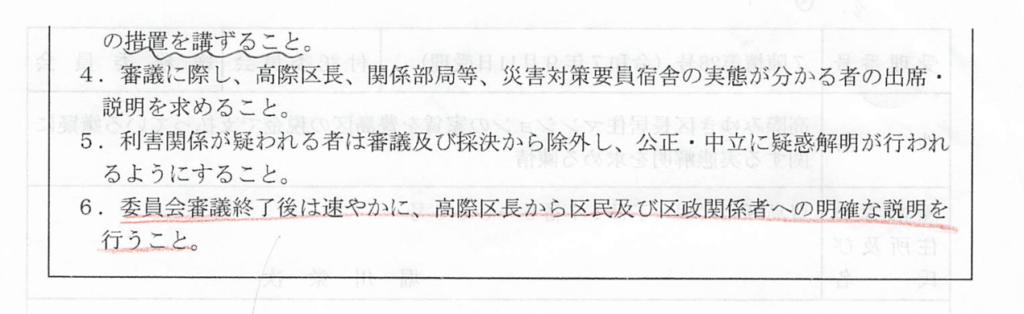 の措置を講ずること。
４．審議に際し、高際区長、関係部局等、災害対策要員宿舎の実態が分かる者の出席・
説明を求めること。
５．利害関係が疑われる者は審議及び採決から除外し、公正・中立に疑惑解明が行われ
るようにすること。
６．委員会審議終了後は速やかに、高際区長から区民及び区政関係者への明確な説明を
行うこと。